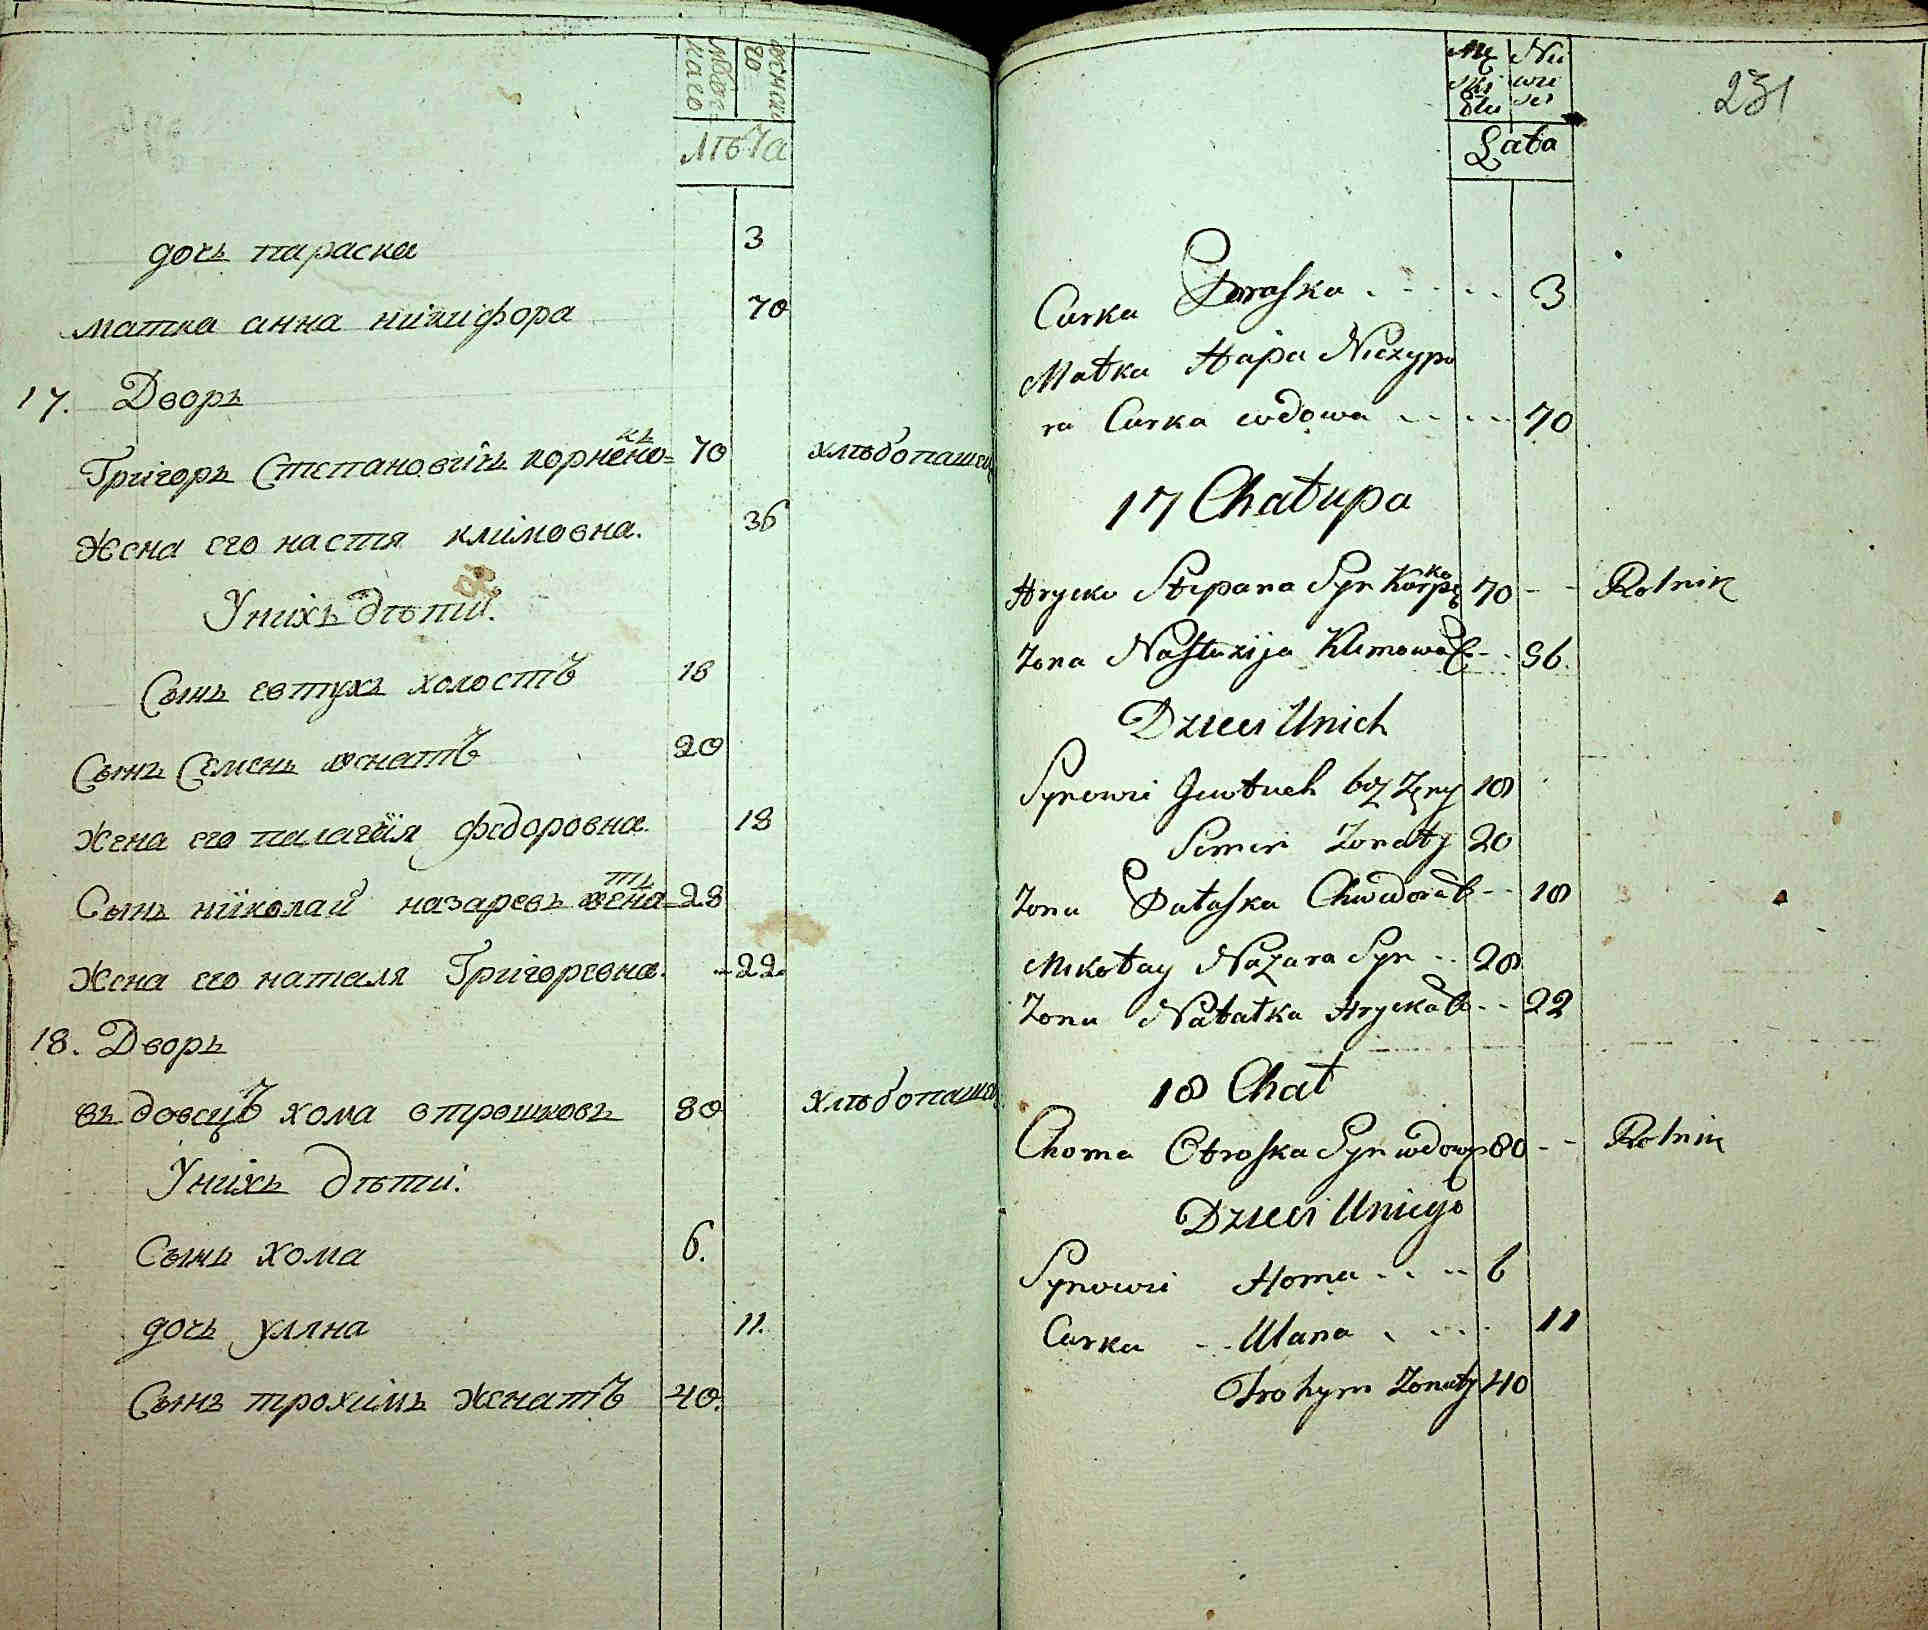 лѣта
дочь параска 3
матка анна никифора 70
17. Дворъ
Григоръ Степановичъ корненко 70 хлѣбопашец
Жена его настя климовна. 36
У нихъ дѣти.
Сынъ евтухъ холостъ 18
Сынъ Семенъ женатъ 20
Жена его палагія федоровна. 18
Сынъ николай назаревъ женатъ 28
Жена его наталя Григоревна. 22
18. Дворъ
въ довецъ хома отрошковъ 80 хлѣбопашец
У нихъ дѣти.
Сынъ хома 6.
дочь уляна 11.
Сынъ трохимъ женатъ 40.
231
Łata
Curka Paraska 3
Matka Hapa Niczypo
ra Curka wdowa 70
17 Chałupa
Hrycko Stepana Syn 70 Rolnik
Zona Nastazija Klimowa C 36
Dzieci Unich
Synowie Jewtuch bez Zeny 18
Semen Zonaty 20
Zona Pałaska Chwedora C 18
Mikołay Nazara Syn 28
Zona Natałka Hrycka C 22
18 Chat
Choma Otroska Syn wdowy 80 Rolnik
Dzieci Uniego
Synowie Homa 6
Curka Ulana 11
Trohym Zonaty 40